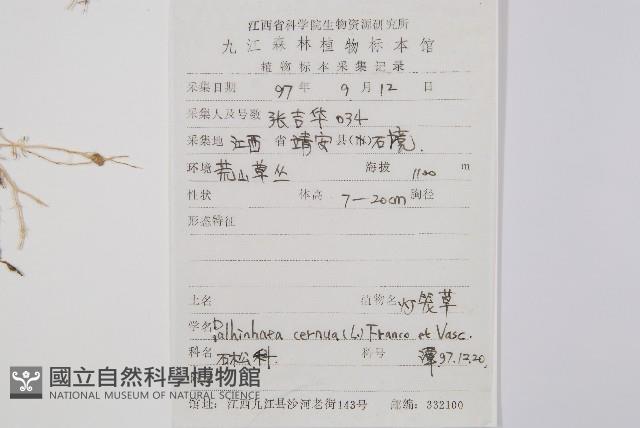 江西省科学院生物资源研究所
九江森林植物标本馆
植物标本采集记录
采集日期 97 年 9 月 12 日
采集人及号数 张吉华 034
采集地 江西 省 靖安 县(市) 石境.
环境 荒山草丛 海拔 1100 m
性状 体高 7—20cm 胸径
形态特征
土名 植物名 灯笼草
学名 Palhinhaea cernua (L.) Franco et Vasc.
科名 石松科. 科号 谭 97.12.20.
國立自然科學博物館
NATIONAL MUSEUM OF NATURAL SCIENCE
馆址: 江西九江县沙河老街143号 邮编: 332100